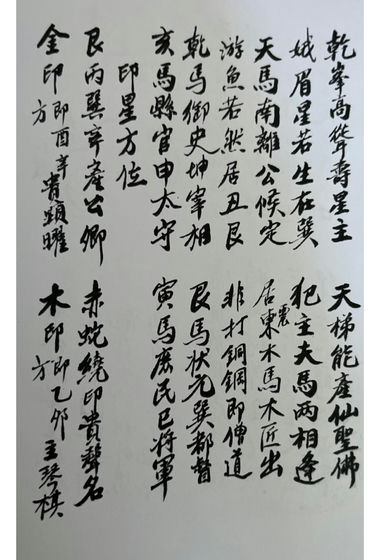 乾峯高聳壽星主 天梯能產仙聖佛
娥眉星若生在巽 犯主夫馬兩相逢
天馬南離公候定 居震東木馬木匠出
游魚若然居丑艮 非打銅鋼即僧道
乾馬御史坤宰相 艮馬狀元巽都督
亥馬縣官申太守 寅馬庶民巳將軍
印星方位
艮丙巽辛產公卿 赤蛇繞印貴聲名
金印即酉辛方貴顯耀 木印即乙卯方主琴棋